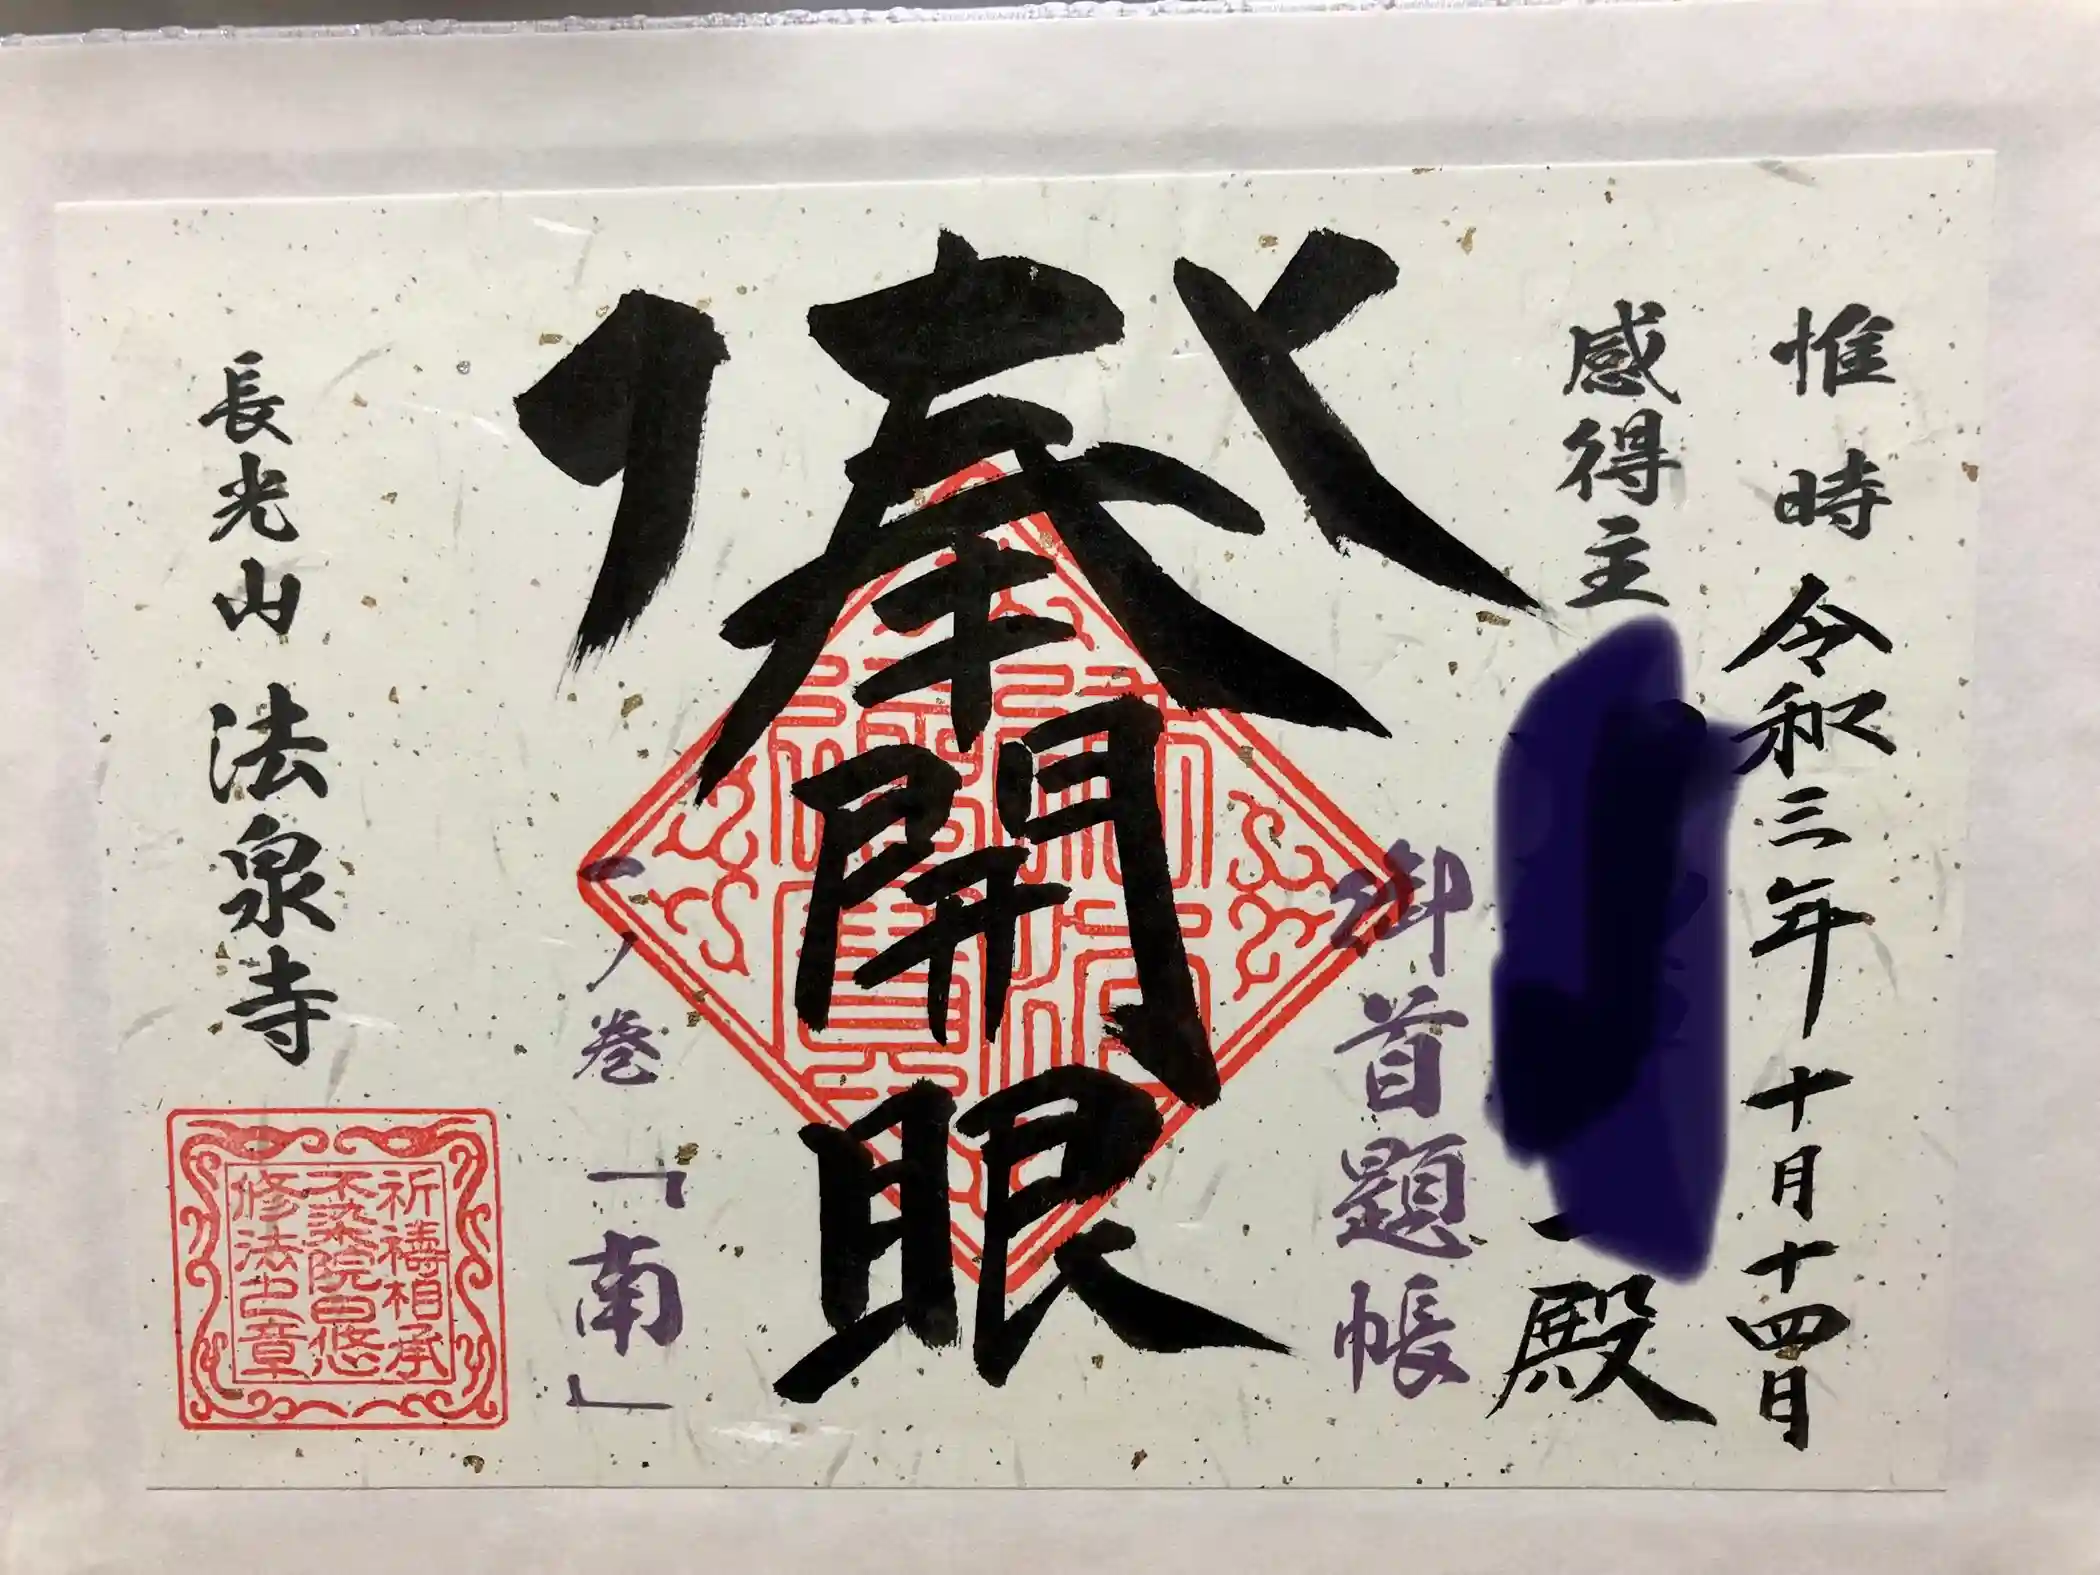 惟時 令和三年十月十四日
感得主
殿
御首題帳
奉開眼
一ノ巻「南」
長光山 法泉寺
祈禱相承
不染院日悠
修法之章